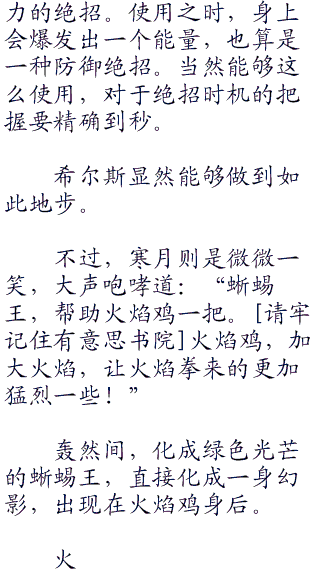 力的绝招。使用之时，身上
会爆发出一个能量，也算是
一种防御绝招。当然能够这
么使用，对于绝招时机的把
握要精确到秒。
希尔斯显然能够做到如
此地步。
不过，寒月则是微微一
笑，大声咆哮道：“蜥蜴
王，帮助火焰鸡一把。[请牢
记住有意思书院]火焰鸡，加
大火焰，让火焰拳来的更加
猛烈一些！”
轰然间，化成绿色光芒
的蜥蜴王，直接化成一身幻
影，出现在火焰鸡身后。
火